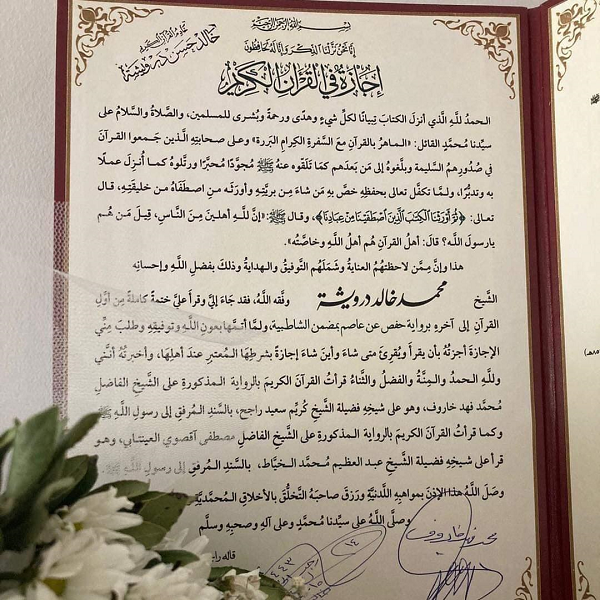 بسم الله الرحمن الرحيم
إنا نحن نزلنا الذكر وإنا له لحافظون
إجازة في القرآن الكريم
خادم القرآن الكريم
خالد حسن درويشة
الحمدُ للَّهِ الَّذي أنزلَ الكتابَ تِبيانًا لكلِّ شيءٍ وهدًى ورحمةً وبُشرى للمسلمين، والصَّلاةُ والسَّلامُ على
سيِّدنا مُحمَّدٍ القائل: «الماهرُ بالقرآنِ معَ السَّفرةِ الكرامِ البَررة» وعلى صحابتهِ الَّذين جَمعوا القرآنَ
في صُدُورِهمُ السَّليمة وبلَّغوهُ إلى مَن بَعدَهم كما تَلقَّوه عنهُ ﷺ مُجوَّدًا مُحبَّرًا ورتَّلوهُ كما أُنزلَ عملًا
به وتدبُّرًا، ولمَّا تكفَّلَ تعالى بحفظهِ خصَّ بهِ مَن شاءَ مِن بريَّتهِ وأورَثَه مَنِ اصطَفَاهُ من خليقتِهِ، قال
تعالى: ﴿ثُمَّ أَوْرَثْنَا ٱلْكِتَٰبَ ٱلَّذِينَ ٱصْطَفَيْنَا مِنْ عِبَادِنَا﴾، وقال ﷺ: «إنَّ للَّهِ أهلينَ مِنَ النَّاسِ، قِيلَ مَن هُم
يارسولَ اللَّه؟ قالَ: أهلُ القرآنِ هُم أهلُ اللَّهِ وخاصَّتُه».
هذا وإنَّ مِمَّن لاحظتهُمُ العنايةُ وشَمَلَهُم التَّوفيقُ والهدايةُ وذلكَ بفضلِ اللَّهِ وإحسانِهِ
الشَّيخ محمد خالد درويشة وفَّقه اللَّهُ، فقد جَاءَ إليَّ وقرأ عليَّ ختمةً كاملةً مِن أوَّلِ
القرآنِ إلى آخرهِ بروايةِ حفصٍ عن عاصمٍ بمضمنِ الشاطبية، ولمَّا أتمَّها بعونِ اللَّهِ وتوفيقِهِ وطلبَ منِّي
الإجازةَ أجزتُهُ بأن يقرأَ ويُقرِئَ متى شاءَ وأينَ شاءَ إجازةً بشرطِها المُعتبرِ عندَ أهلِها، وأخبرتُهُ أنَّني
وللَّهِ الحمدُ والمِنَّةُ والفضلُ والثَّناءُ قرأتُ القرآنَ الكريمَ بالروايةِ المذكورةِ على الشَّيخِ الفاضلِ
مُحمَّد فهد خاروف، وهو على شيخِهِ فضيلةِ الشَّيخِ كُريِّم سعيد راجح، بالسَّندِ المُرفقِ إلى رسولِ اللَّهِ ﷺ
وكما قرأتُ القرآنَ الكريمَ بالروايةِ المذكورةِ على الشَّيخِ الفاضلِ مصطفى آقصوي العينتابي، وهو
قرأ على شيخِهِ فضيلةِ الشَّيخِ عبد العظيم مُحمَّد الخيَّاط، بالسَّندِ المُرفقِ إلى رسولِ اللَّهِ ﷺ.
وصَلَ اللَّهُ هذا الإذنَ بمواهبِهِ اللَّدنيَّةِ ورَزقَ صاحبَهُ التَّخلُّقَ بالأخلاقِ المُحمَّديَّةِ
وصلَّى اللَّهُ على سيِّدنا مُحمَّدٍ وعلى آلِهِ وصحبِهِ وسلَّم
قاله
محمد فهد خاروف
١٤